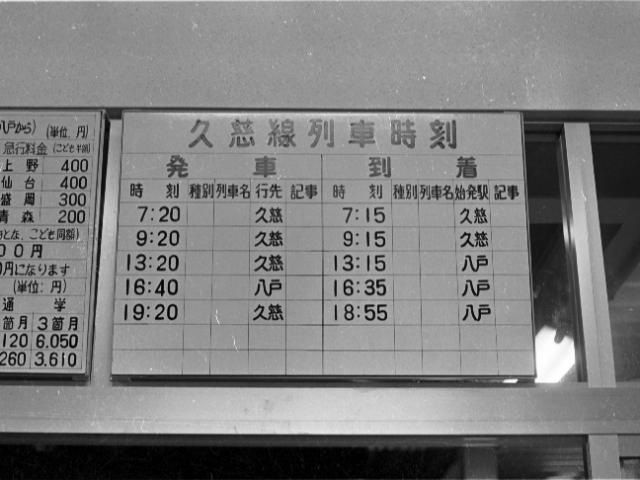 八戸から) (単位:円)
急行料金 (こども半額)
上野 400
仙台 400
盛岡 300
青森 200
とな、こども同額)
00円
円になります
(単位:円)
通学
箇月 3箇月
120 6.050
260 3.610
久慈線列車時刻
発車 到着
時刻 種別 列車名 行先 記事 時刻 種別 列車名 始発駅 記事
7:20 久慈 7:15 久慈
9:20 久慈 9:15 久慈
13:20 久慈 13:15 八戸
16:40 八戸 16:35 久慈
19:20 久慈 18:55 八戸